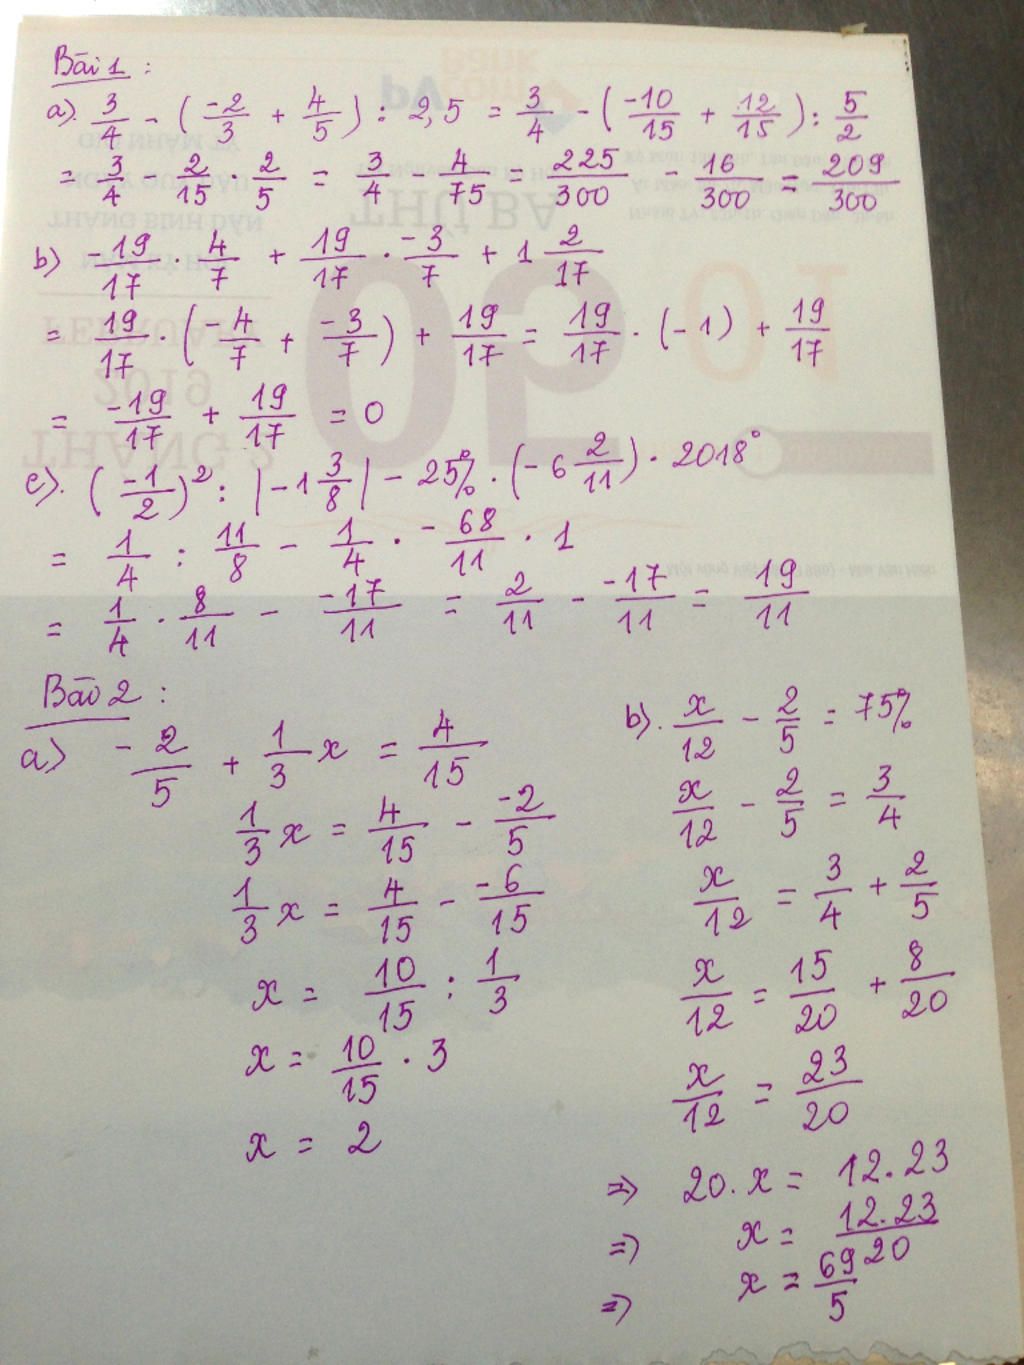 Bài 1 :
a). 3/4 - (-2/3 + 4/5) : 2,5 = 3/4 - (-10/15 + 12/15) : 5/2
= 3/4 - 2/15 . 2/5 = 3/4 - 4/75 = 225/300 - 16/300 = 209/300
b) -19/17 . 4/7 + 19/17 . -3/7 + 1 2/17
= 19/17 . (-4/7 + -3/7) + 19/17 = 19/17 . (-1) + 19/17
= -19/17 + 19/17 = 0
c). (-1/2)² : |-1 3/8| - 25% . (-6 2/11) . 2018°
= 1/4 : 11/8 - 1/4 . -68/11 . 1
= 1/4 . 8/11 - -17/11 = 2/11 - -17/11 = 19/11
Bài 2 :
a) -2/5 + 1/3 x = 4/15
1/3 x = 4/15 - -2/5
1/3 x = 4/15 - -6/15
x = 10/15 : 1/3
x = 10/15 . 3
x = 2
b). x/12 - 2/5 = 75%
x/12 - 2/5 = 3/4
x/12 = 3/4 + 2/5
x/12 = 15/20 + 8/20
x/12 = 23/20
=> 20. x = 12. 23
=> x = 12. 23/20
=> x = 69/5